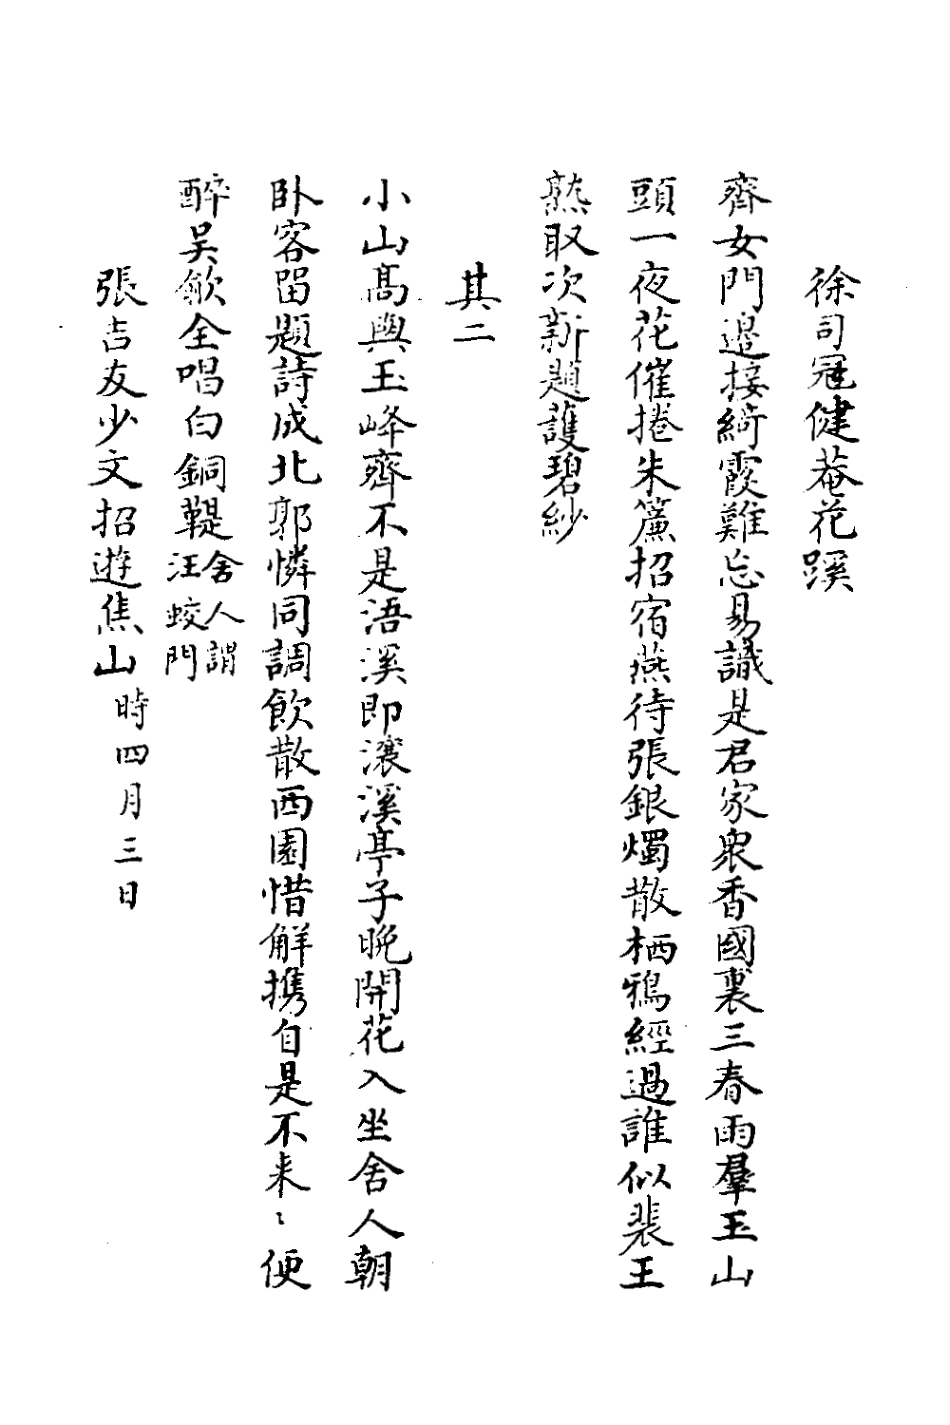 徐司冠健菴花蹊
齊女門邉接綺霞難忘易識是君家衆香國裏三春雨羣玉山
頭一夜花催捲朱簾招宿燕待張銀燭散栖鴉經過誰似裴王
熟取次新題護碧紗
其二
小山髙與玉峰齊不是浯溪即瀼溪亭子晚開花入坐舍人朝
卧客留題詩成北郭憐同調飲散西園惜解攜自是不来〻便
醉吳歈全唱白銅鞮舍人謂汪蛟門
張吉友少文招遊焦山時四月三日